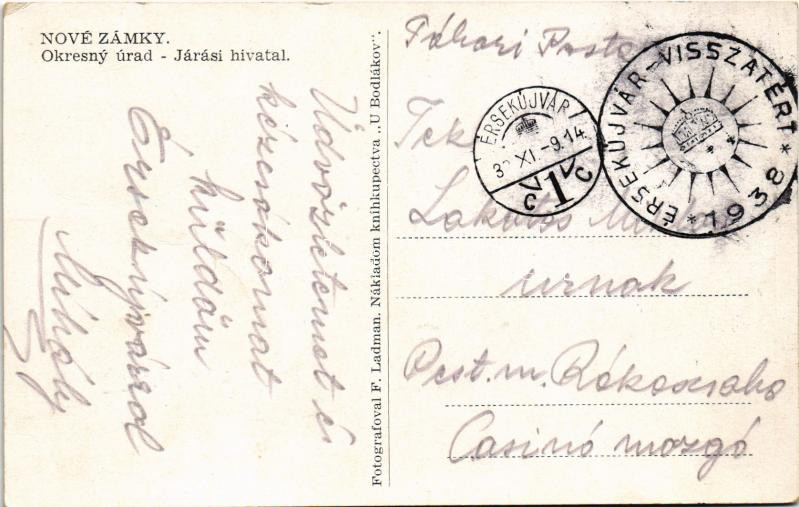 NOVÉ ZÁMKY.
Okresný úrad - Járási hivatal.
Üdvözletemet és
kézcsókomat
küldöm
Érsekújvárról
Mihály
Fotografoval F. Ladman. Nákladom kníhkupectva „U Bodlákov".
Tábori Posta
ÉRSEKÚJVÁR
XI.-9.14
C 1 C
ÉRSEKÚJVÁR-VISSZATÉRT
* 1938 *
Tek
Lakatos
urnak
Pest. m. Rákoscsaba
Casinó mozgó